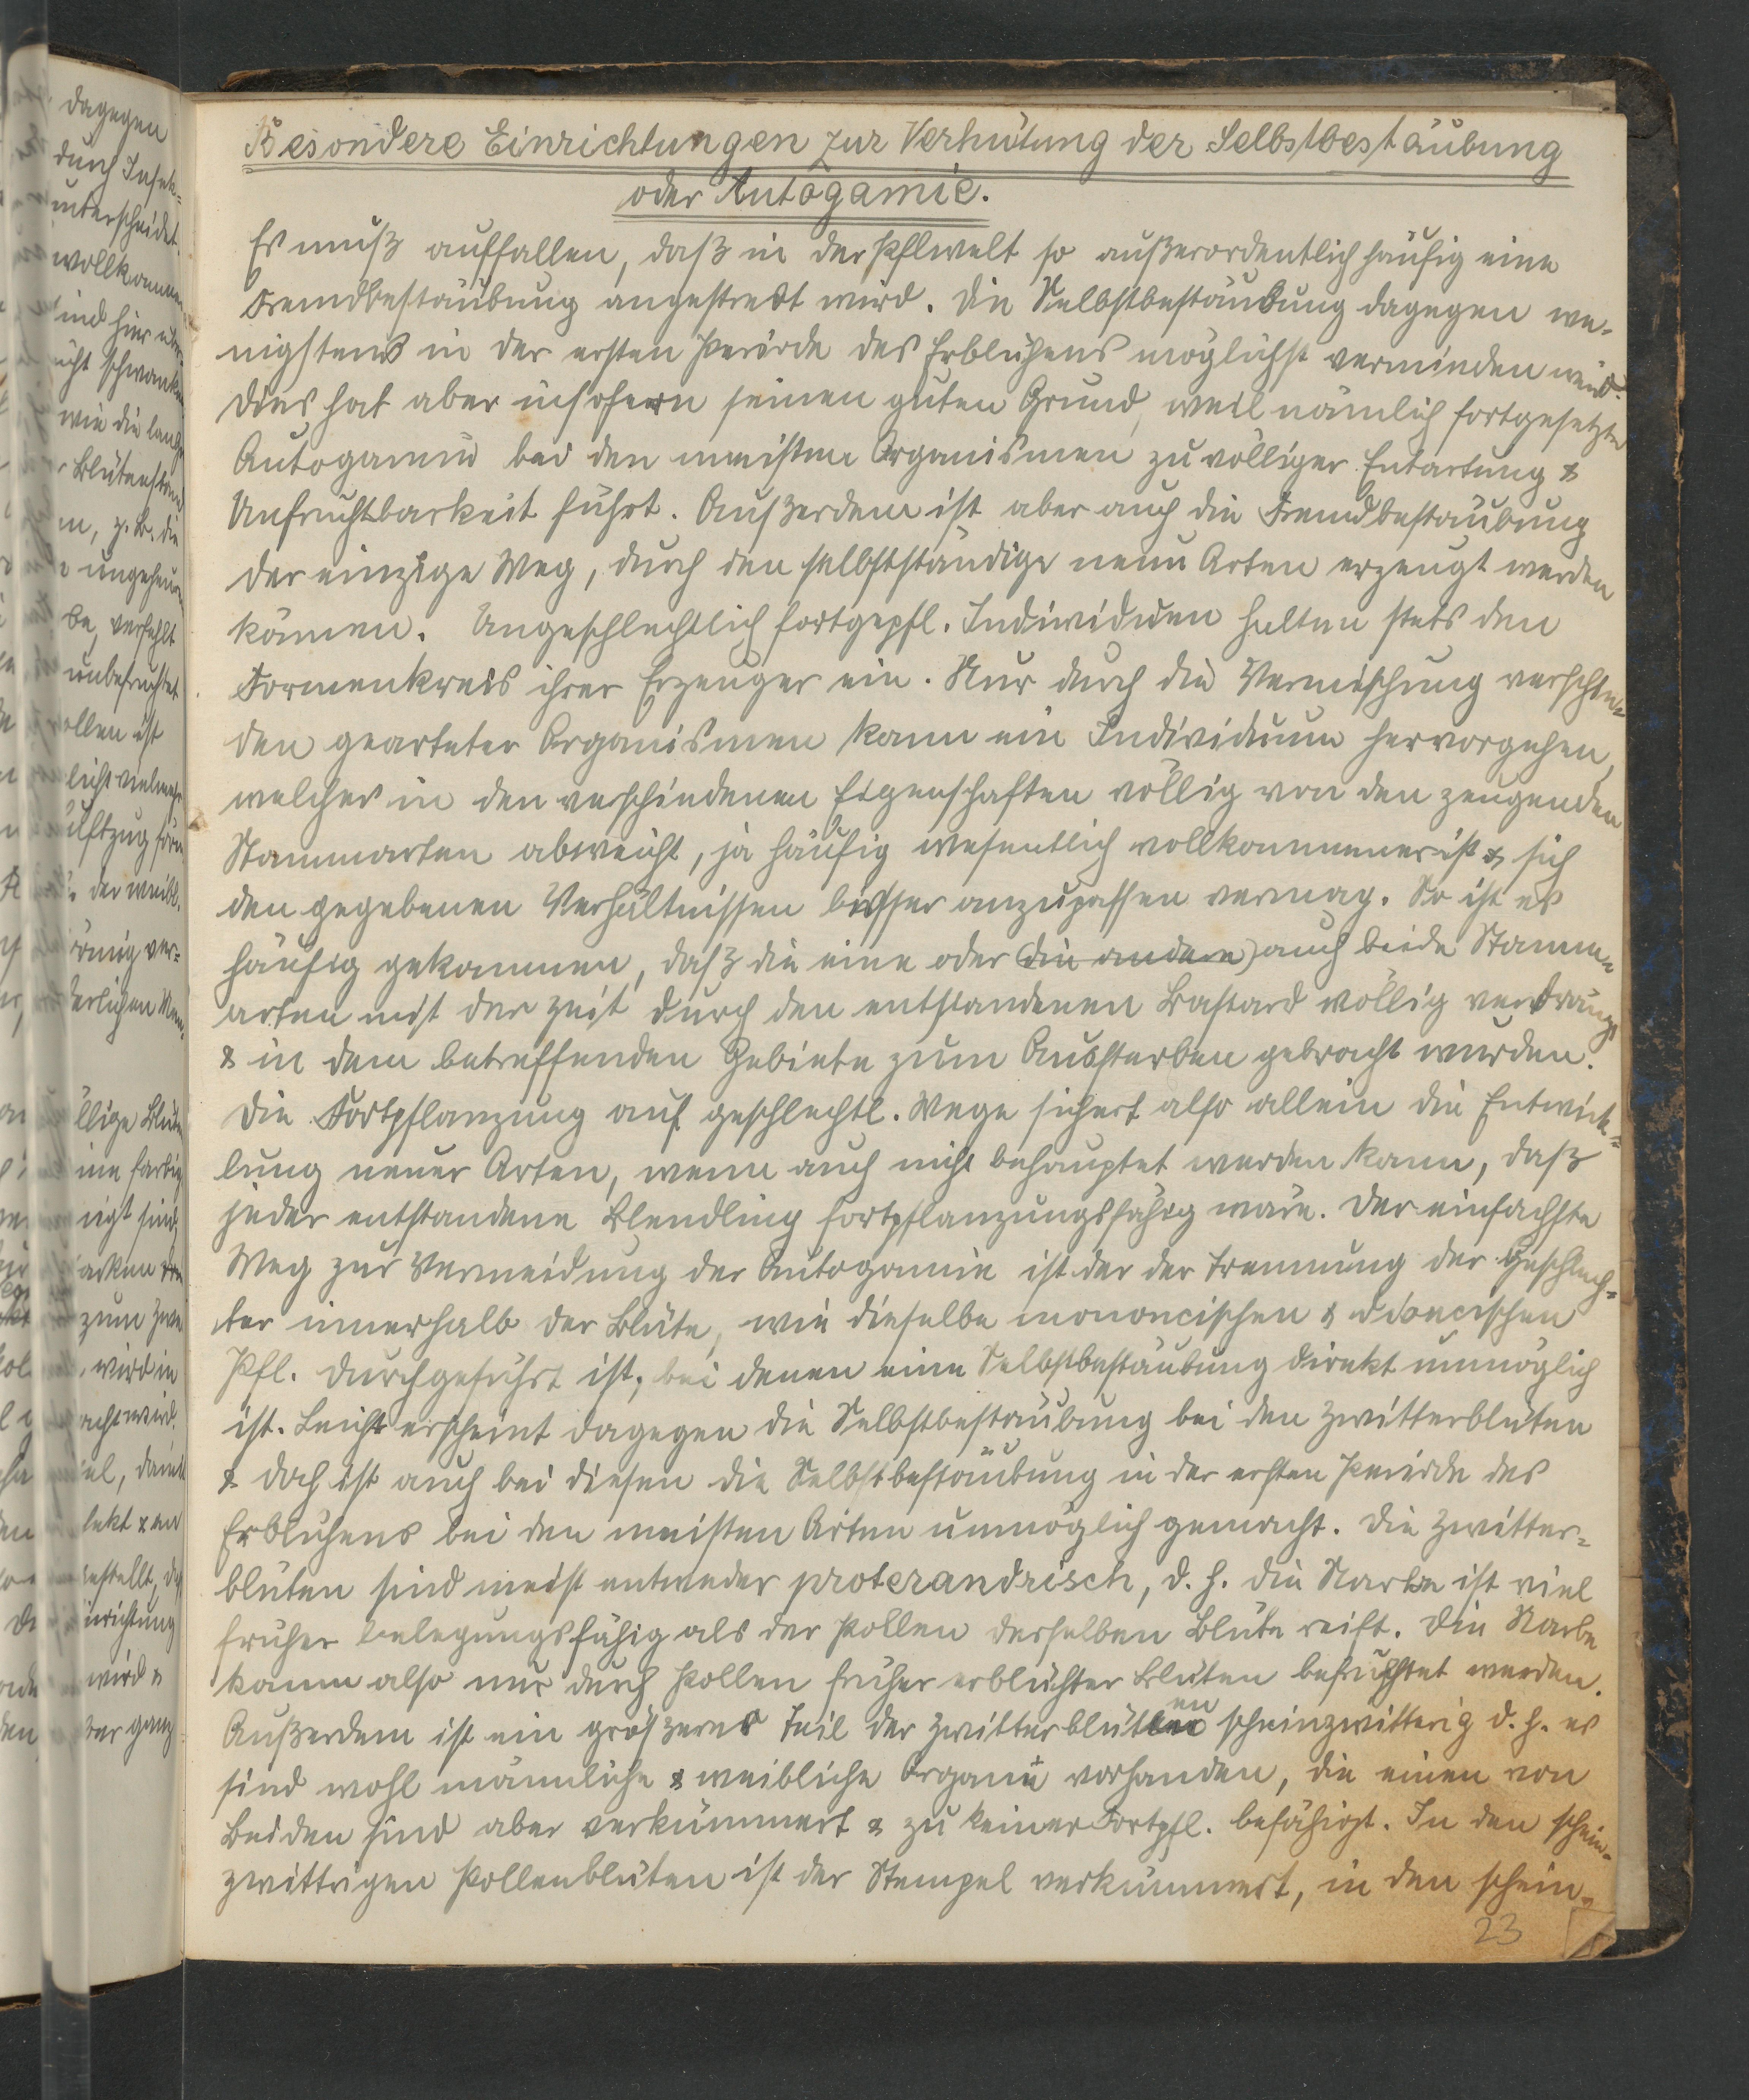 Besondere Einrichtungen zur Verhütung der Selbstbestäubung
oder Autogamie.
Es muß auffallen, daß in der Pflwelt so außerordentlich häufig eine
Fremdbestäubung angestrebt wird. Die Selbstbestäubung dagegen we-
nigstens in der ersten Periode des Erblühens möglichst vermieden wird.
Dies hat aber insofern seinen guten Grund, weil nämlich fortgesetzte
Autogamie bei den meisten Organismen zu völliger Entartung &
Unfruchtbarkeit führt. Außerdem ist aber auch die Fremdbestäubung
der einzige Weg, durch den selbstständige neue Arten erzeugt werden
können. Ungeschlechtlich fortgepfl. Individuen halten stets den
Formenkreis ihrer Erzeuger ein. Nur durch die Vermischung verschie-
den gearteter Organismen kann ein Individuum hervorgehen,
welches in den verschiedenen Eigenschaften völlig von den zeugenden
Stammarten abweicht, ja häufig wesentlich vollkommener ist & sich
den gegebenen Verhältnissen besser anzupassen vermag. So ist es
häufig gekommen, daß die eine oder (die andere) auch beide Stamm-
arten mit der Zeit durch den entstandenen Bastard völlig verdrängt
& in dem betreffenden Gebiete zum Aussterben gebracht wurden.
Die Fortpflanzung auf geschlechtl. Wege sichert also allein die Entwick-
lung neuer Arten, wenn auch nicht behauptet werden kann, daß
jeder entstandene Blendling fortpflanzungsfähig wäre. Der einfachste
Weg zur Vermeidung der Autogamie ist der der Trennung der Geschlech-
ter innerhalb der Blüte, wie dieselbe mononcischen & dioncischen
Pfl. durchgeführt ist, bei denen eine Selbstbestäubung direkt unmöglich
ist. Leicht erscheint dagegen die Selbstbestäubung bei den Zwitterblüten
& doch ist auch bei diesen die Selbstbestäubung in der ersten Periode des
Erblühens bei den meisten Arten unmöglich gemacht. Die Zwitter-
blüten sind meist entweder proterandrisch, d. h. die Narbe ist viel
früher belegungsfähig als der Pollen derselben Blüte reift. Die Narbe
kann also nur durch Pollen früher erblühter Blüten befruchtet werden.
Außerdem ist ein größerer Teil der Zwitterblüten scheinzwitterig d. h. es
sind wohl männliche & weibliche Organe vorhanden, die einen von
Beiden sind aber verkümmert & zu keiner Fortpfl. befähigt. In den schein-
zwittrigen Pollenblüten ist der Stempel verkümmert, in den schein-
23